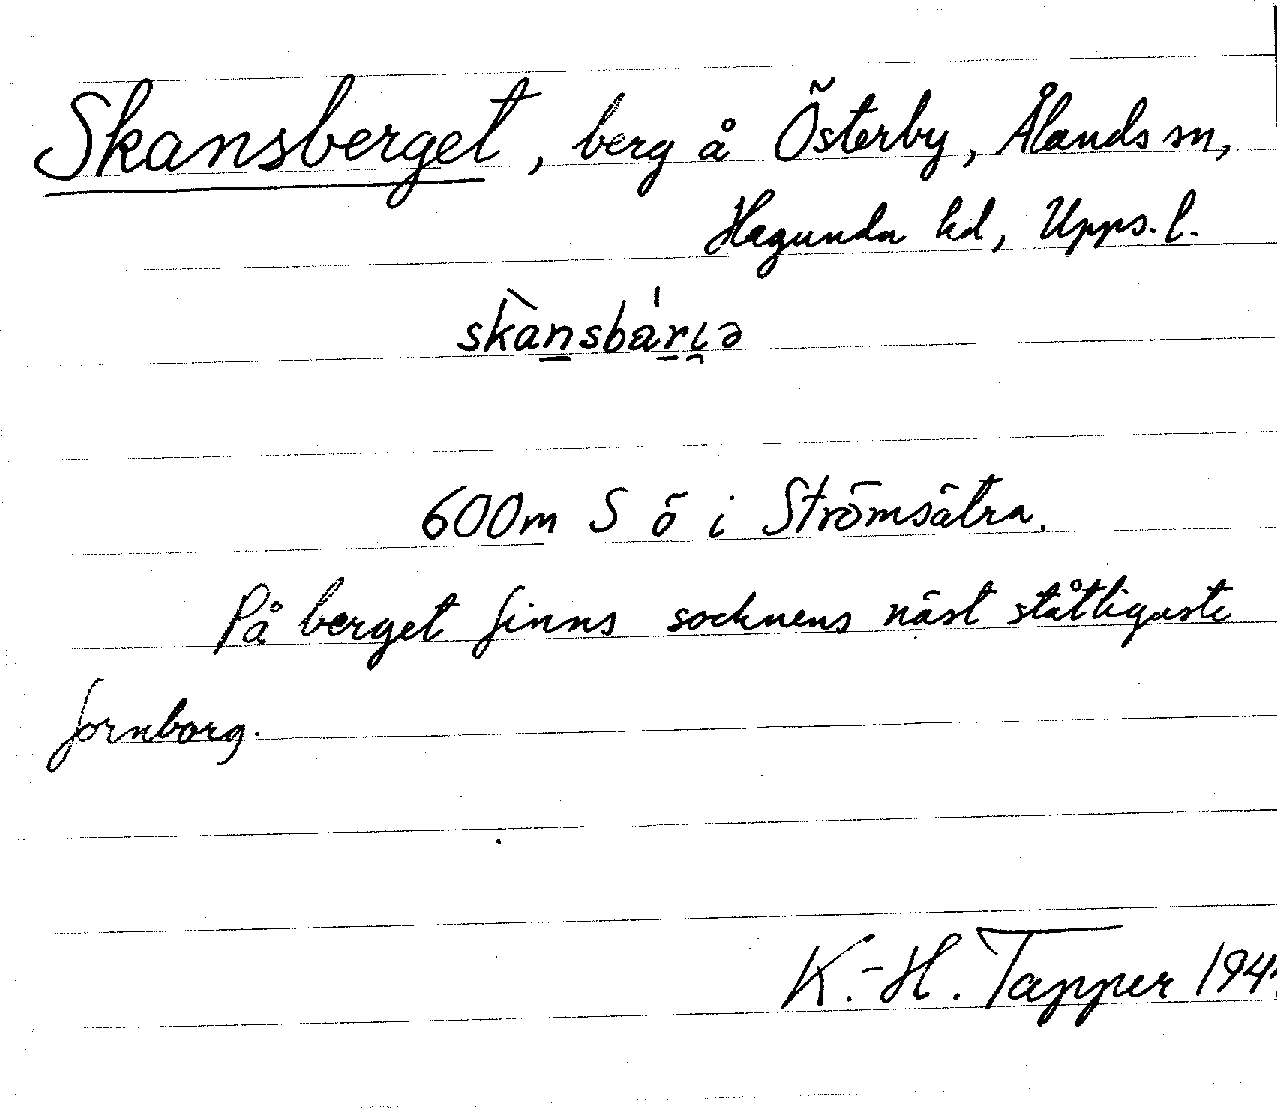 Skansberget, berg å Österby, Ålands sn,
Hagunda hd, Upps. l.
600m S ö i Strömsätra.
På berget finns socknens näst ståtligaste
fornborg.
K.-H. Tapper